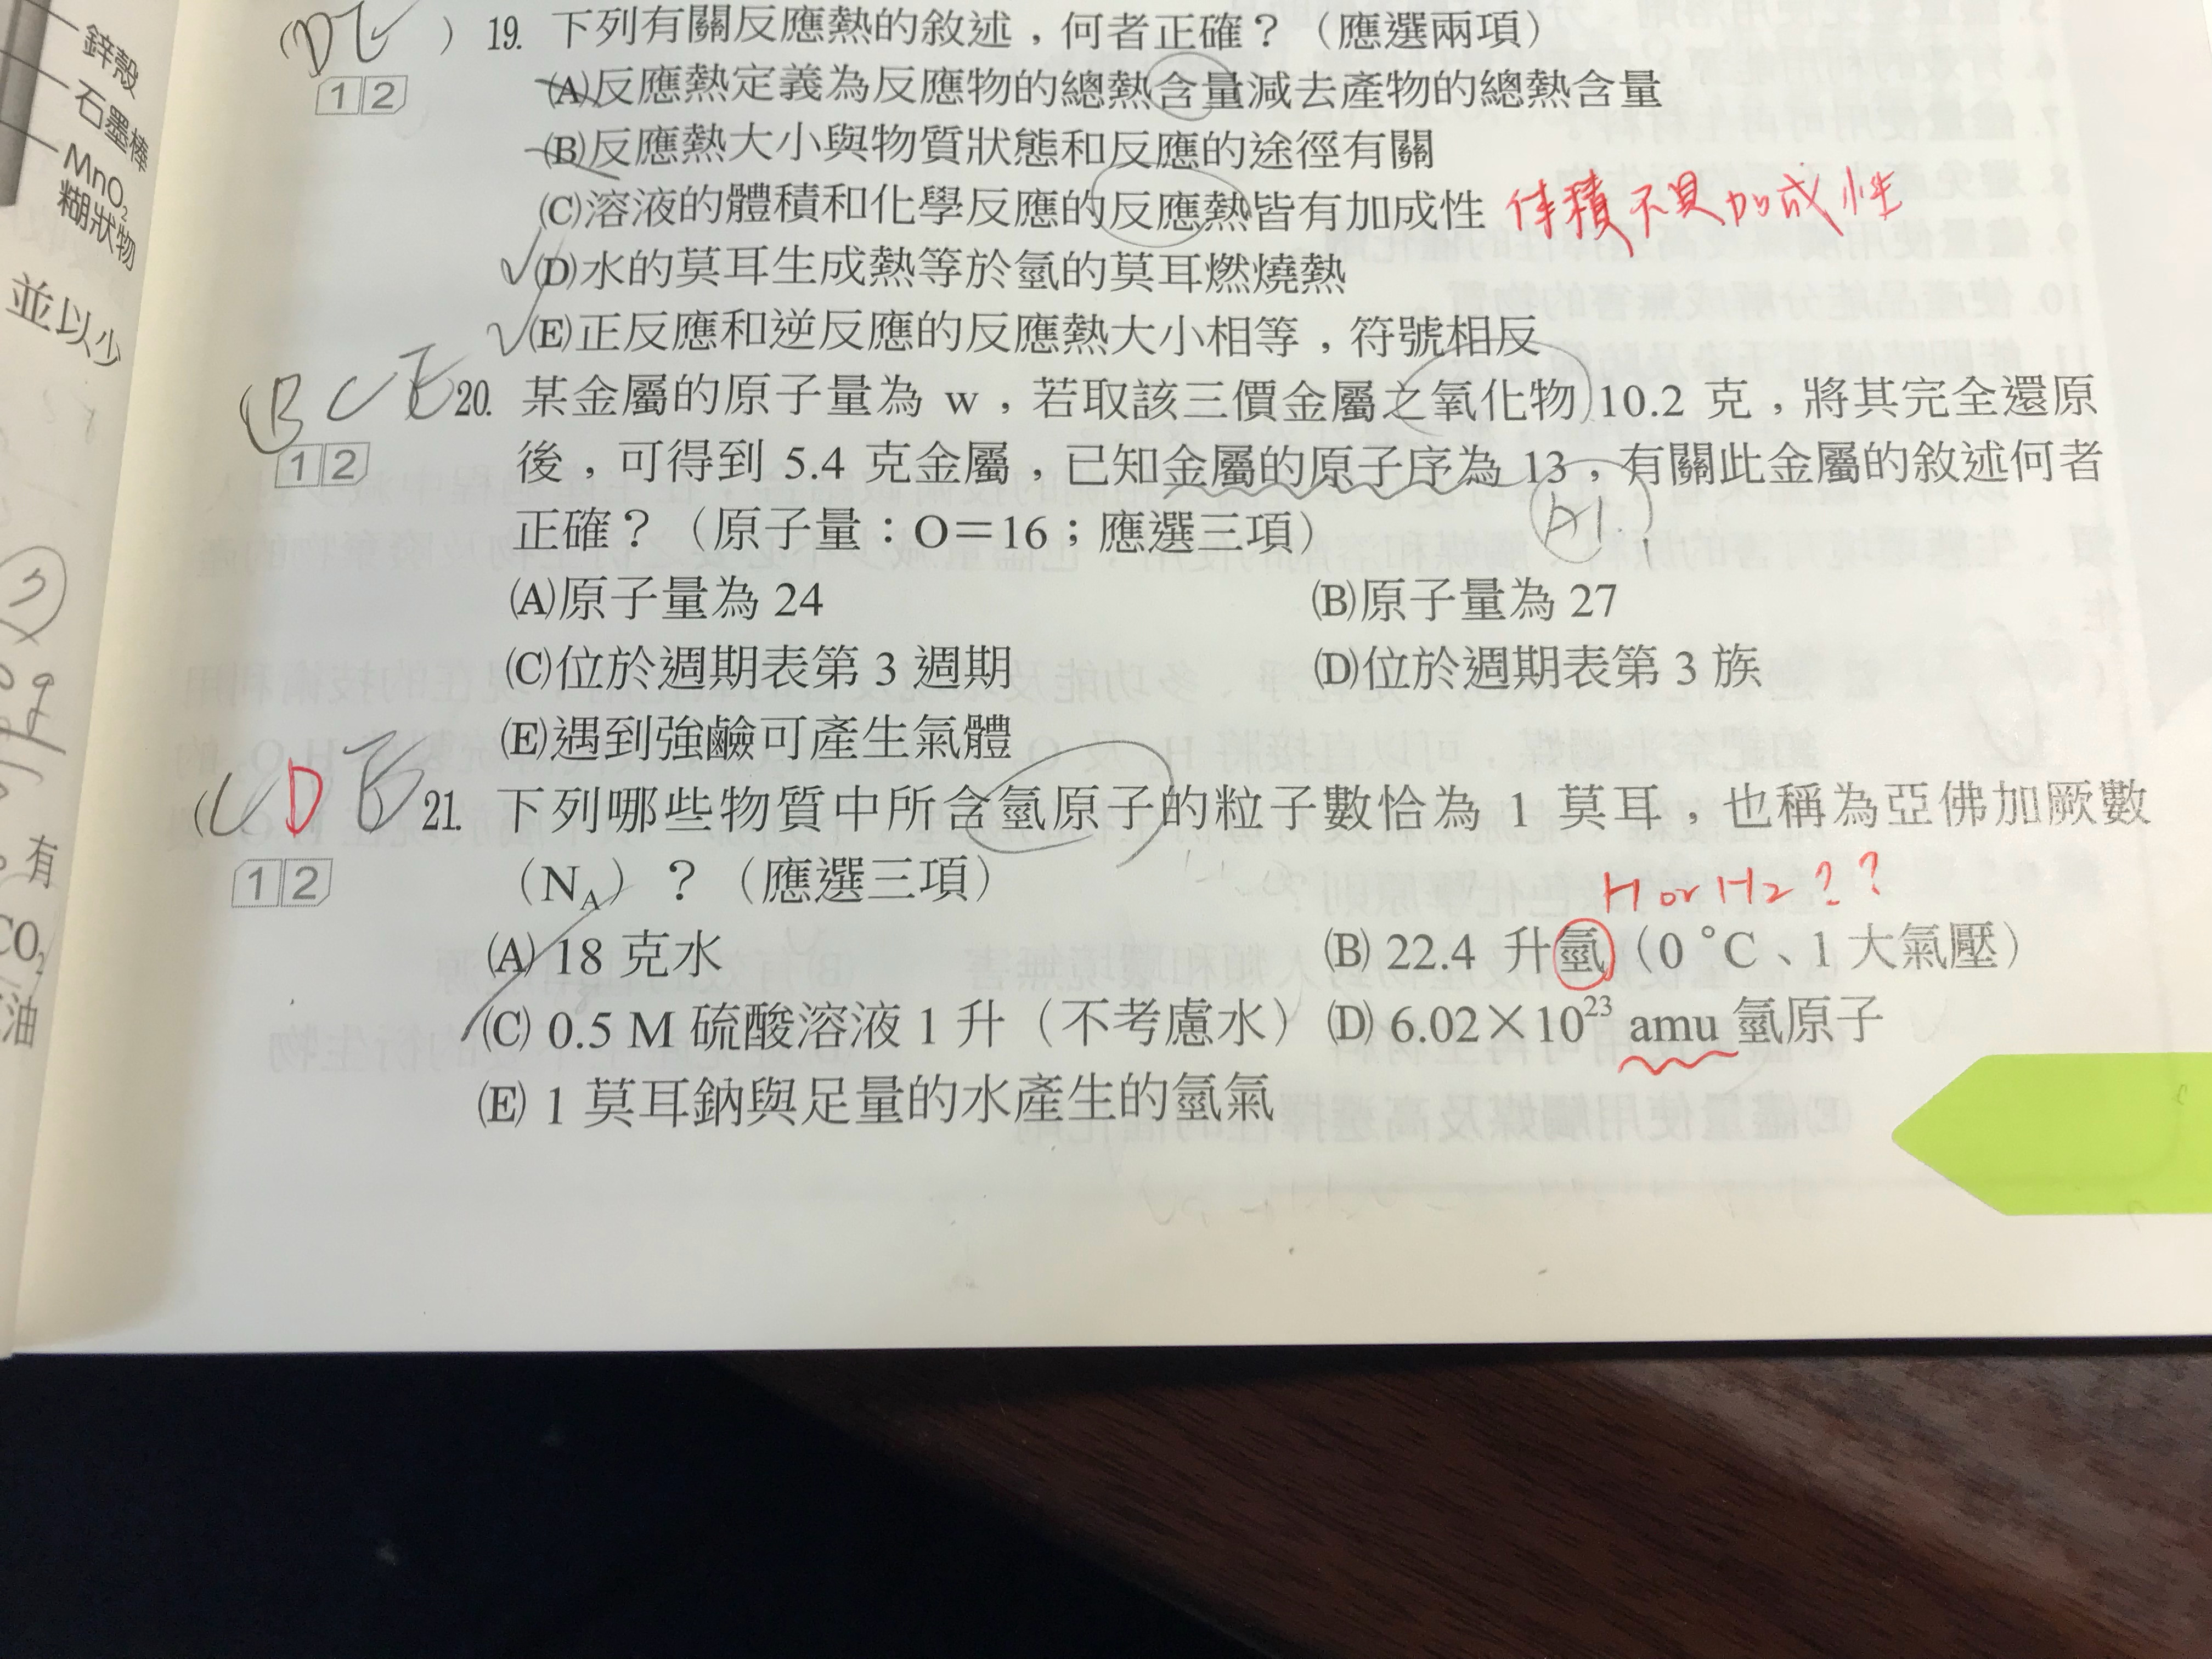 鋅殼
石墨棒
MnO₂
糊狀物
並以少
(DE) 19. 下列有關反應熱的敘述，何者正確？（應選兩項）
12
(A)反應熱定義為反應物的總熱含量減去產物的總熱含量
(B)反應熱大小與物質狀態和反應的途徑有關
(C)溶液的體積和化學反應的反應熱皆有加成性 体積不具加成性
(D)水的莫耳生成熱等於氫的莫耳燃燒熱
(E)正反應和逆反應的反應熱大小相等，符號相反
(BCE 20. 某金屬的原子量為 w，若取該三價金屬之氧化物 10.2 克，將其完全還原
12
後，可得到 5.4 克金屬，已知金屬的原子序為 13，有關此金屬的敘述何者
正確？（原子量：O＝16；應選三項） Al
(A)原子量為 24 (B)原子量為 27
(C)位於週期表第 3 週期 (D)位於週期表第 3 族
(E)遇到強鹼可產生氣體
(CDE 21. 下列哪些物質中所含氫原子的粒子數恰為 1 莫耳，也稱為亞佛加厥數
12
（N_A）？（應選三項）
H or H₂？？
(A) 18 克水 (B) 22.4 升氫（0 °C、1 大氣壓）
(C) 0.5 M 硫酸溶液 1 升（不考慮水） (D) 6.02×10²³ amu 氫原子
(E) 1 莫耳鈉與足量的水產生的氫氣
有
CO₂
油